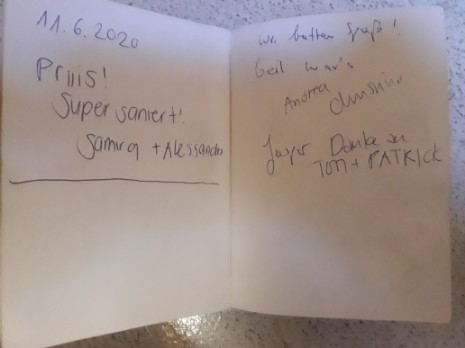 11.6.2020
Priiis!
Super saniert!
Samira + Alessandro
Wir hatten Spaß!
Geil war's
Andrea
Christina
Jasper Danke an
TOM + PATRICK